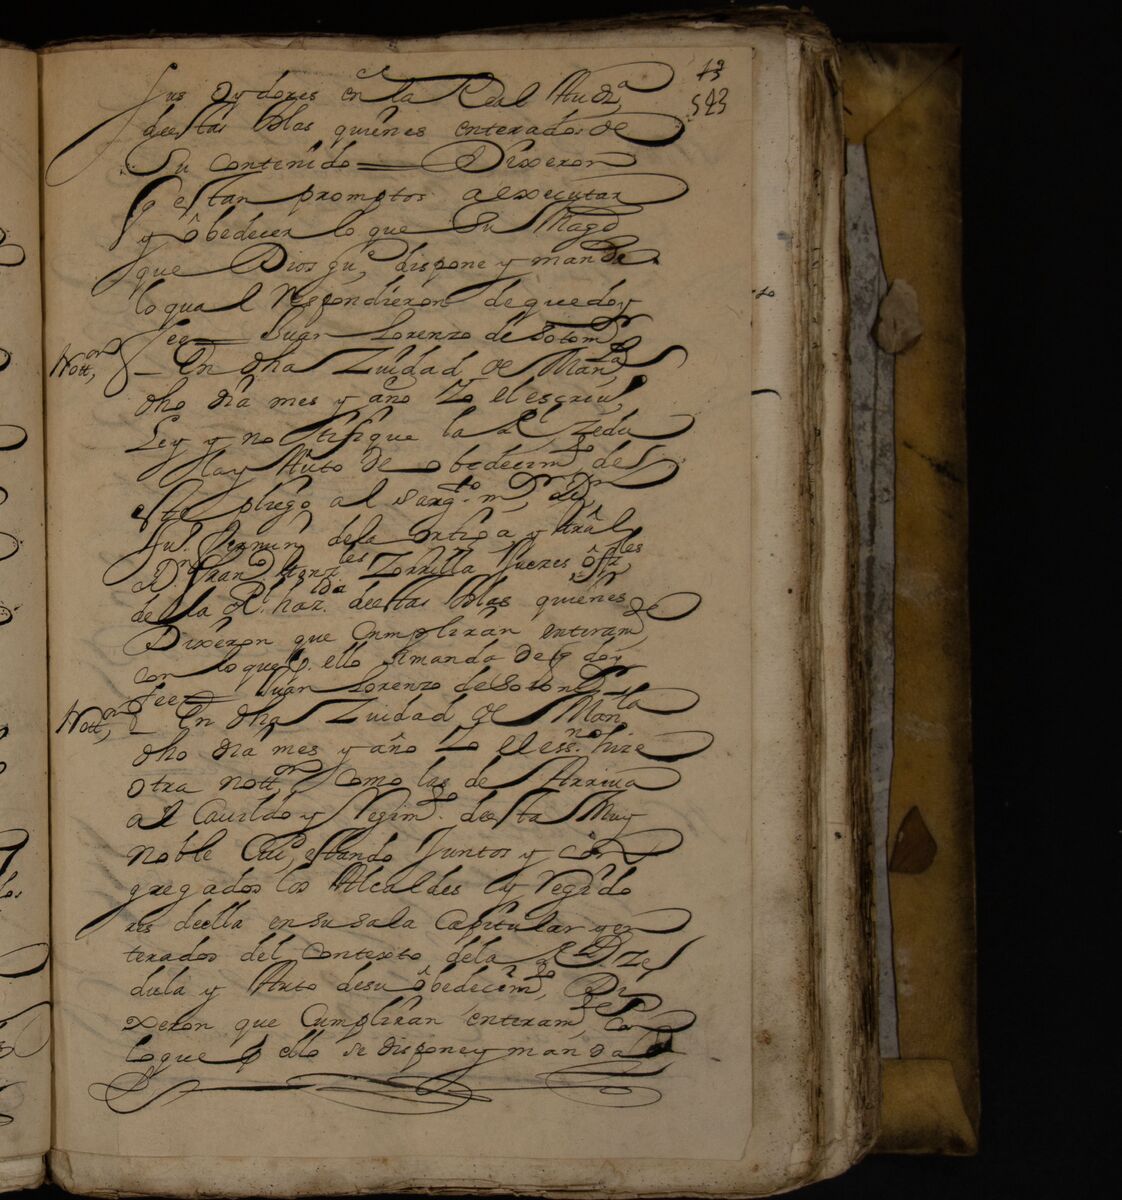 13
523
sus oydores en la Real Audª
deestas Yslas quienes enterados de
Su contenido = Dixeron
q estan promptos a executar
y obedecer lo que Su Magd
que Dios gue, dispone y manda
lo qual Respondieron de que doy
fee = Juan Lorenzo de Sotomr
Notton,
– En dha Zuidad de Manla
dho dia mes y año Yo el escriu,
Ley y notifique la Rl Zedu
la y Auto de obedecimto, des
te pliego al Sargto mr Dn,
Jul. Fermin de la y Gral
Dn Franco Zorrilla Jueces offzles
de la Rl hazda deestas Yslas quienes
Dixeron que Cumpliran enteramte,
con lo que p. ello se manda de q doy
fee = Juan Lorenzo de Sotomr
Notton,
– En dha Zuidad de Manla
dho dia mes y año Yo el essno hize
otra notton, como las de Arriua
al Cauildo y Regimto. deesta Muy
noble Ciud, estando Juntos y con
gregados los Alcaldes y Regido
res deella en su sala Capitular y en
terados del Contexto de la Rl Ze
dula y Auto de su obedecimto, Di
xeron que Cumpliran enteramte, Con
lo que p ello se dispone y manda